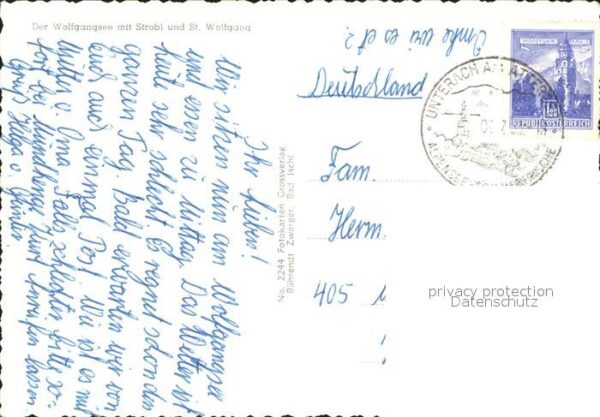 Der Wolfgangsee mit Strobl und St. Wolfgang
Ihr Lieben!
Wir sitzen nun am Wolfgangsee
und essen zu Mittag. Das Wetter ist
heut sehr schlecht. Es regnet schon den
ganzen Tag. Bald erwarten wir von
Euch auch einmal Post. Wie ist es mit
Mutter u. Oma. Falls schlechter, bitte so-
fort bei anrufen lassen
Gruß Helga u. Günter
No. 2244 Fotokarten Grossverlag
Bährendt Zwerger, Bad Ischl
Omke wie es ist?
Deutschland
Fam.
Herm.
405
UNTERACH AM ATTERSEE
S 1.50
REPUBLIK ÖSTERREICH
privacy protection
Datenschutz